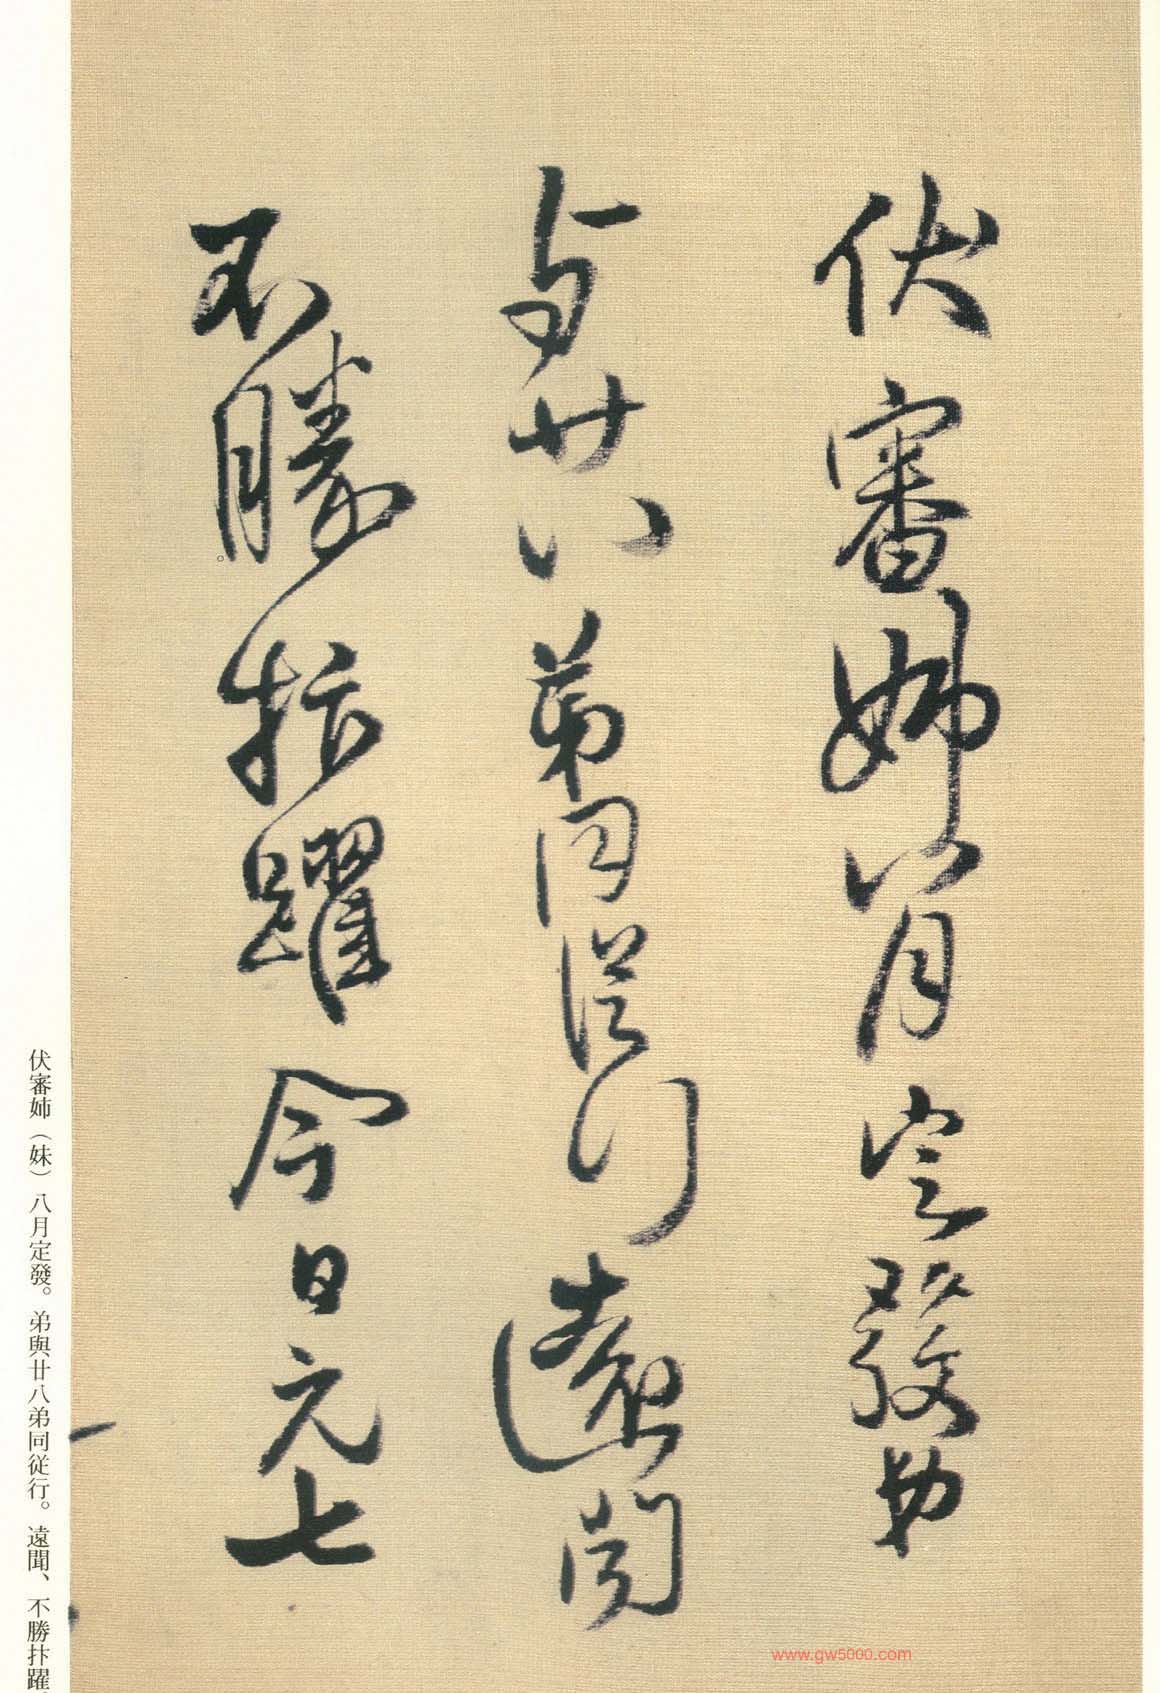 伏審姊八月定發弟
與廿八弟同從行遠聞
不勝抃躍今日元七
伏審姉（妹）八月定發。弟與廿八弟同従行。遠聞、不勝抃躍。
www.gw5000.com